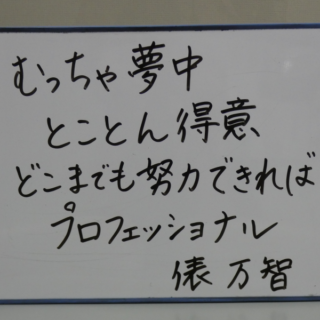 むっちゃ夢中
とことん得意
どこまでも努力できれば
プロフェッショナル
俵万智